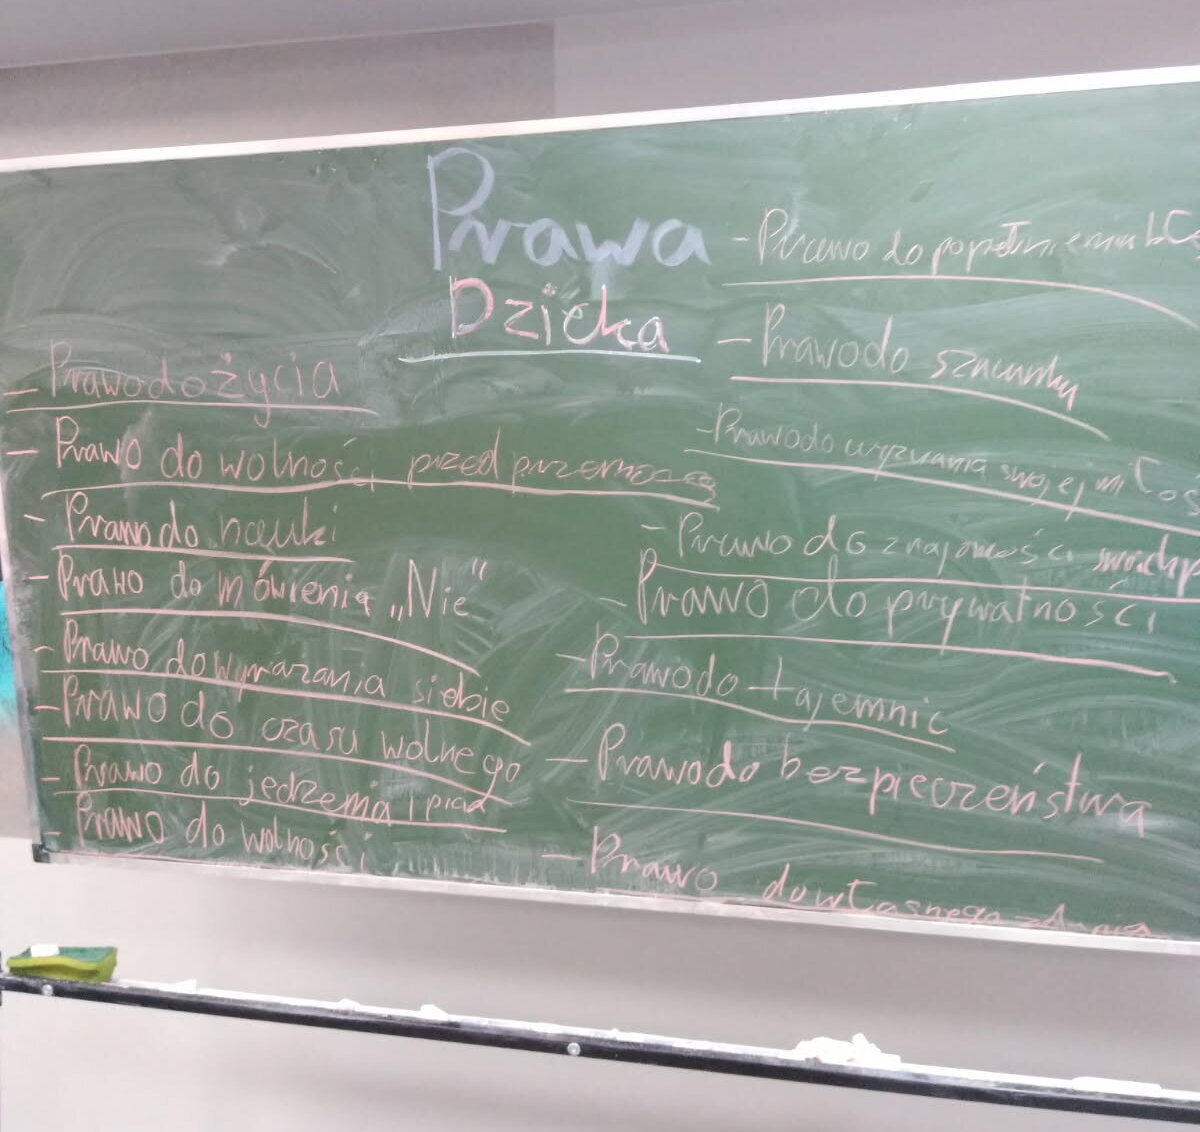 Prawa
Dziecka
- Prawo do życia
- Prawo do wolności przed przemocą
- Prawo do nauki
- Prawo do mówienia „Nie"
- Prawo do wyrażania siebie
- Prawo do czasu wolnego
- Prawo do jedzenia i picia
- Prawo do wolności
- Prawo do popełnienia
- Prawo do szacunku
- Prawo do wyznania swojej
- Prawo do znajomości swoich
- Prawo do prywatności
- Prawo do tajemnic
- Prawo do bezpieczeństwa
- Prawo do własnego zdania